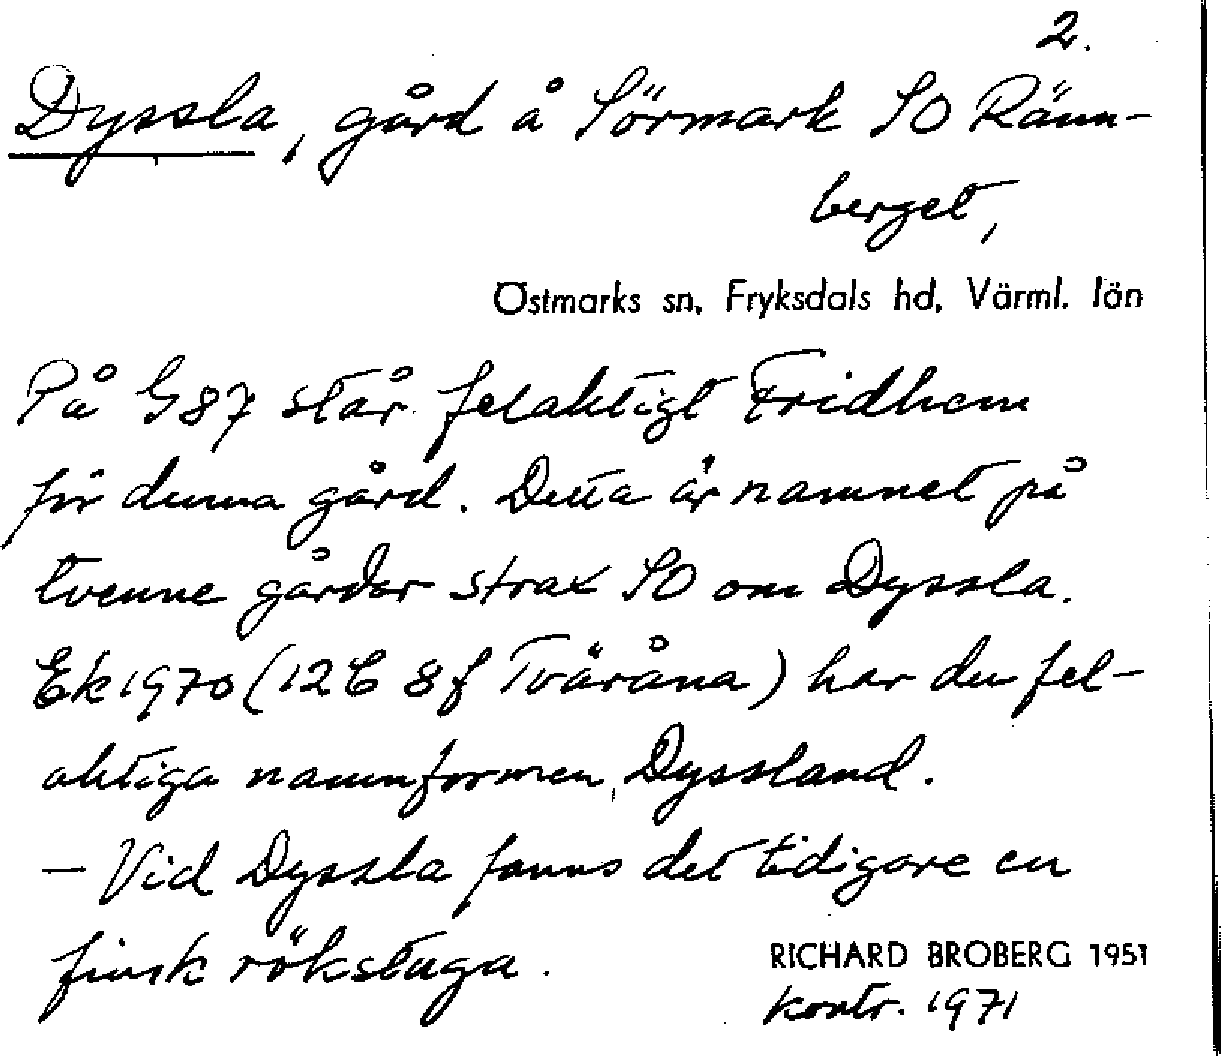 2.
Dyssla, gård å Sörmark SO Ränn-
berget,
Östmarks sn, Fryksdals hd, Värml. län
På G87 står felaktigt Fridhem
för denna gård. Detta är namnet på
tvenne gårdar strax SO om Dyssla.
Ek 1970 (12C 8f Tväråna) har den fel-
aktiga namnformen Dyssland.
– Vid Dyssla fanns det tidigare en
finsk rökstuga.
RICHARD BROBERG 1951
kontr. 1971